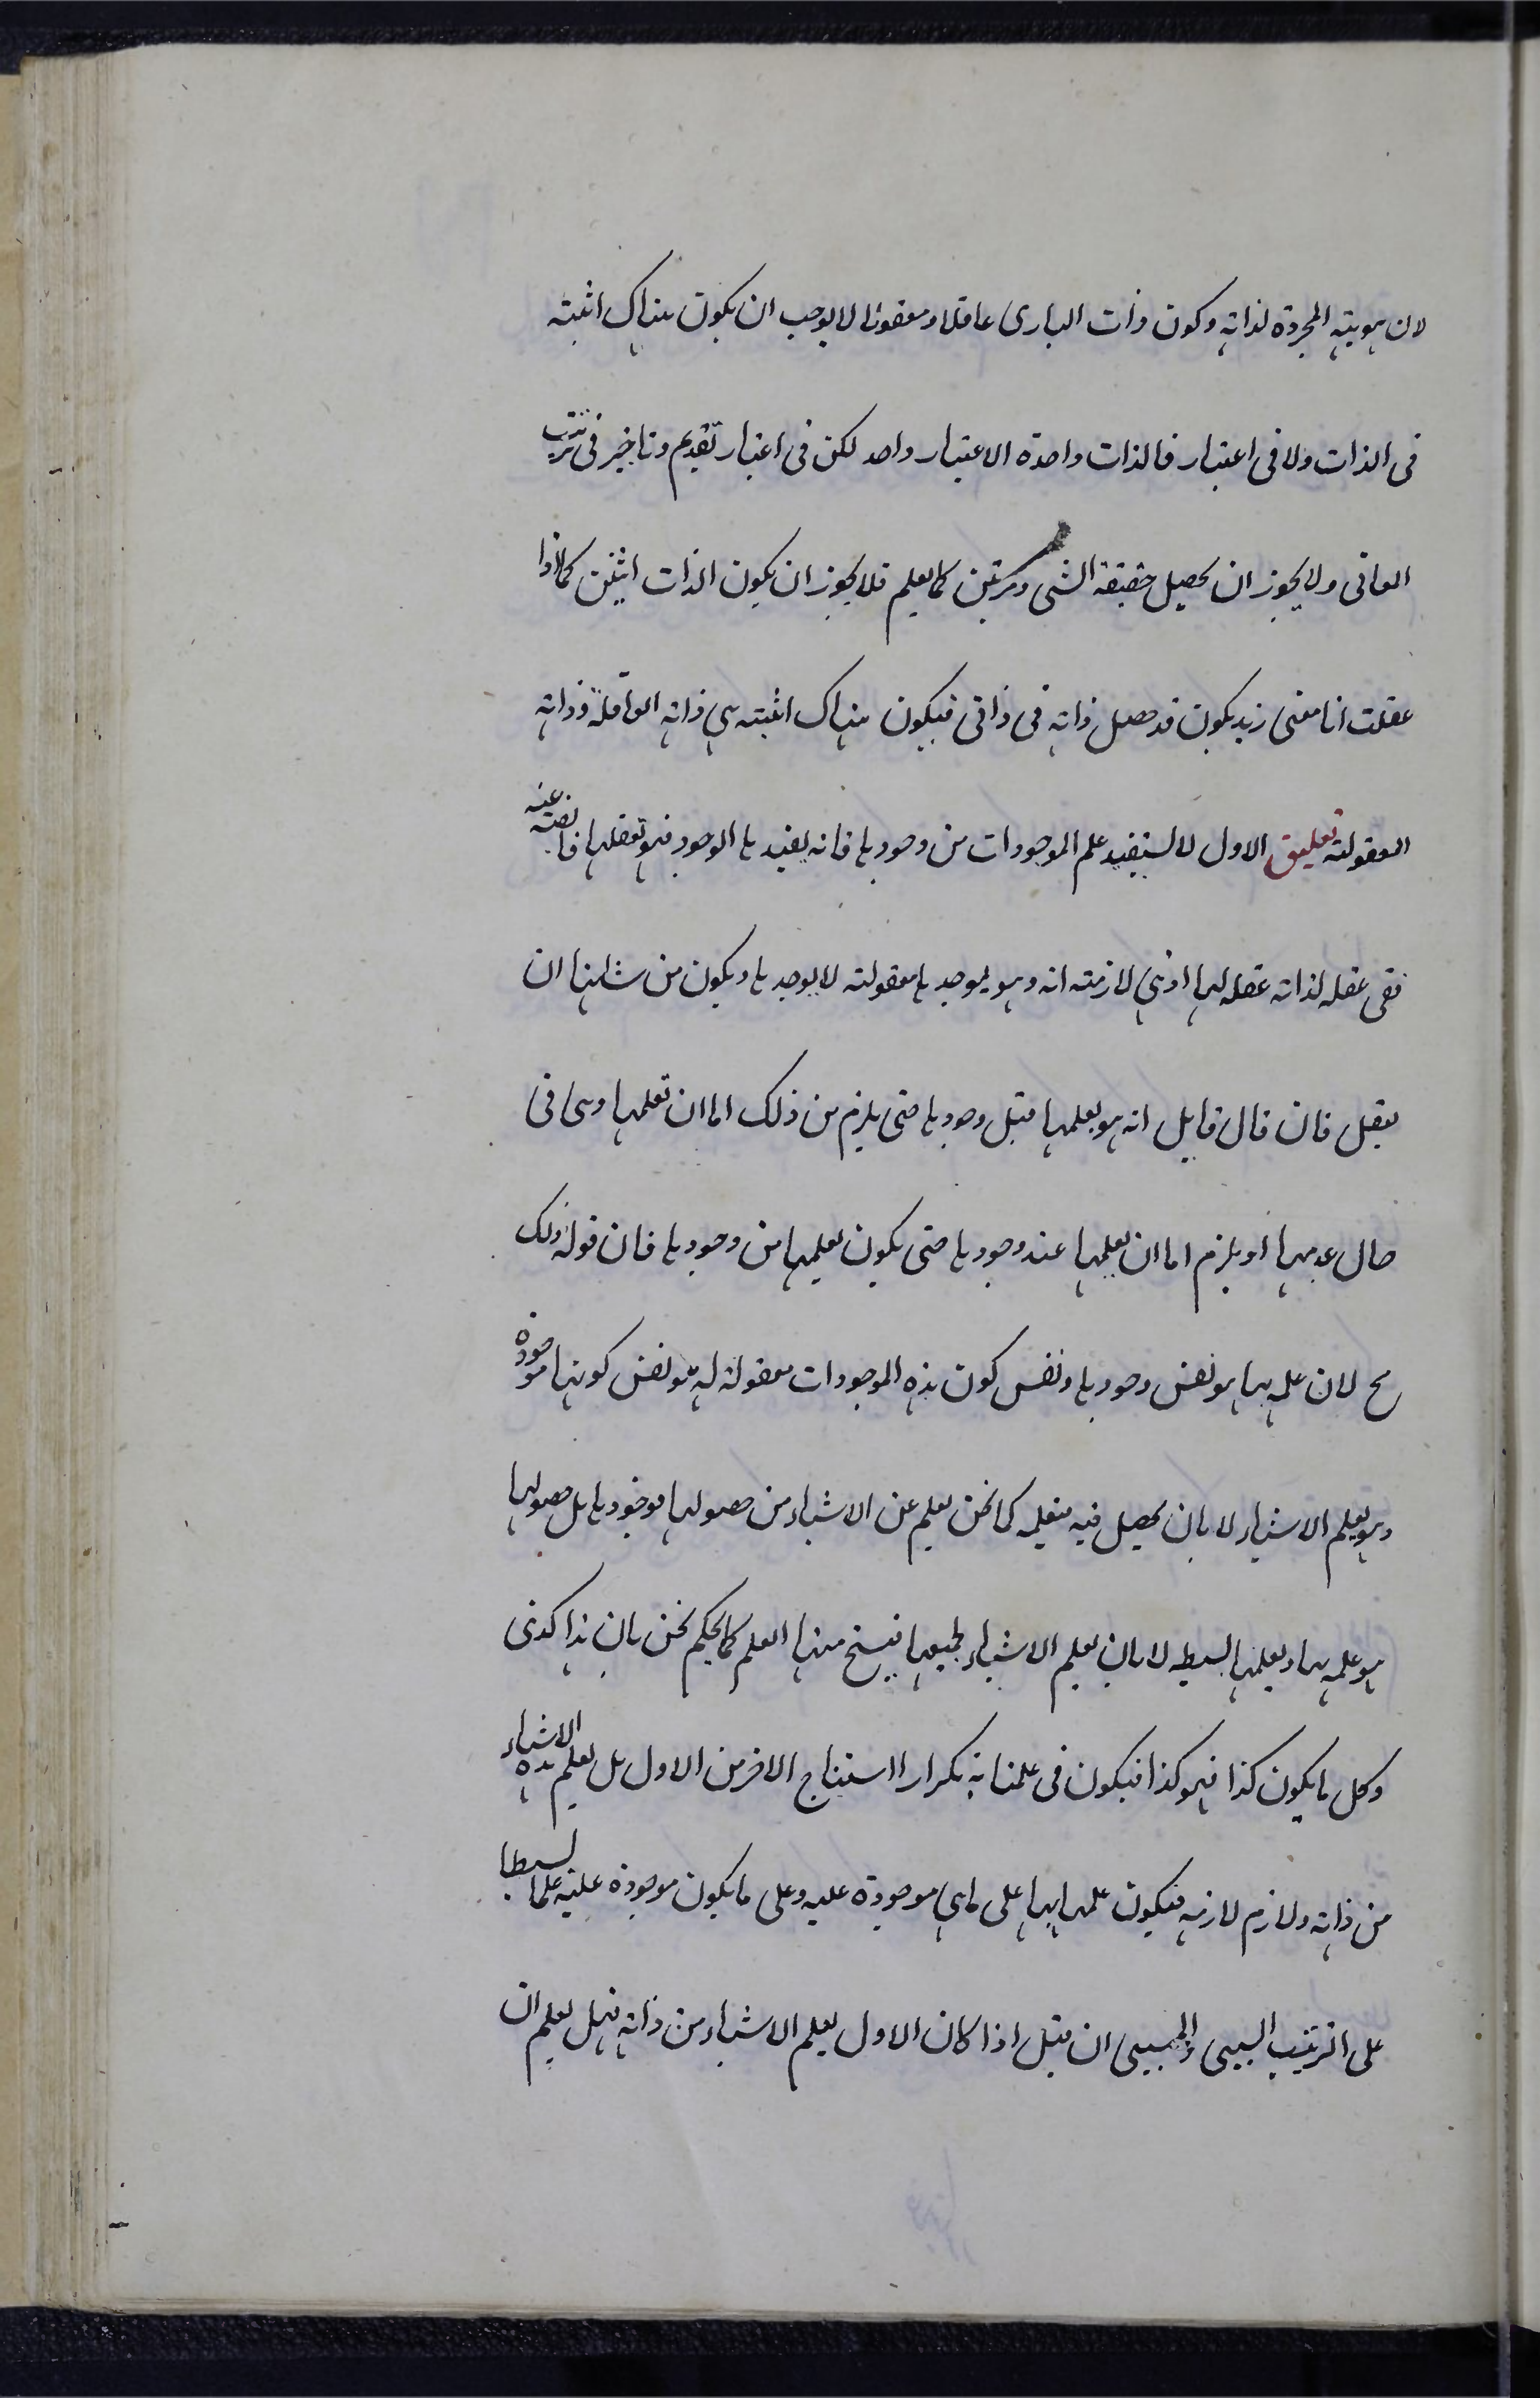 لان هويته المجردة لذاته وكون ذات الباري عاقلا ومعقولا لا يوجب ان يكون هناك اثنينه
في الذات ولا في اعتبار فالذات واحدة الاعتبار واحد لكن في اعتبار تقديم وتاخير في ترتيب
المعاني ولا يجوز ان يحصل حقيقة الشي مرتين كما يعلم فلا يجوز ان يكون الذات اثنين كما اذا
عقلت انا معنى زيد يكون قد حصل ذاته في ذاتي فيكون هناك اثنينه هي ذاته العاقلة وذاته
المعقولة تعليق الاول لا يستفيد علم الموجودات من وجودها فانه يفيدها الوجود فهو تعقلها فائضة عنه
ففي عقله لذاته عقله لها اذ هي لازمته انه وهو يوجدها معقولته لا يوجدها ويكون من شانها ان
يعقل فان قال قايل انه هو يعلمها قبل وجودها حتى يلزم من ذلك اما ان تعلمها وهى في
حال عدمها او يلزم اما ان يعلمها عند وجودها حتى يكون يعلمها من وجودها فان قوله ذلك
مح لان علمه بها هو نفس وجودها ونفس كون هذه الموجودات معقولة له هو نفس كونها موجودة
وهو يعلم الاشياء لا بان يحصل فيه فيعلمه كما نحن نعلم عن الاشياء من حصولها ووجودها بل حصولها
هو علمه بها ويعلمها بسيطه لا بان يعلم الاشياء بجميعها فينسخ منها العلم كما يحكم نحن بان هذا كذى
وكل ما يكون كذا فهو كذا فيكون في علمنا به تكرارا استنتاج الاخر من الاول بل يعلم هذه الاشياء
من ذاته ولازم لازمه فيكون علمه بها على ماهي موجودة عليه وعلى ما يكون موجودة عليه علما بسيطا
على الترتيب السببي والمسببي ان قيل اذا كان الاول يعلم الاشياء من ذاته فهل يعلم ان